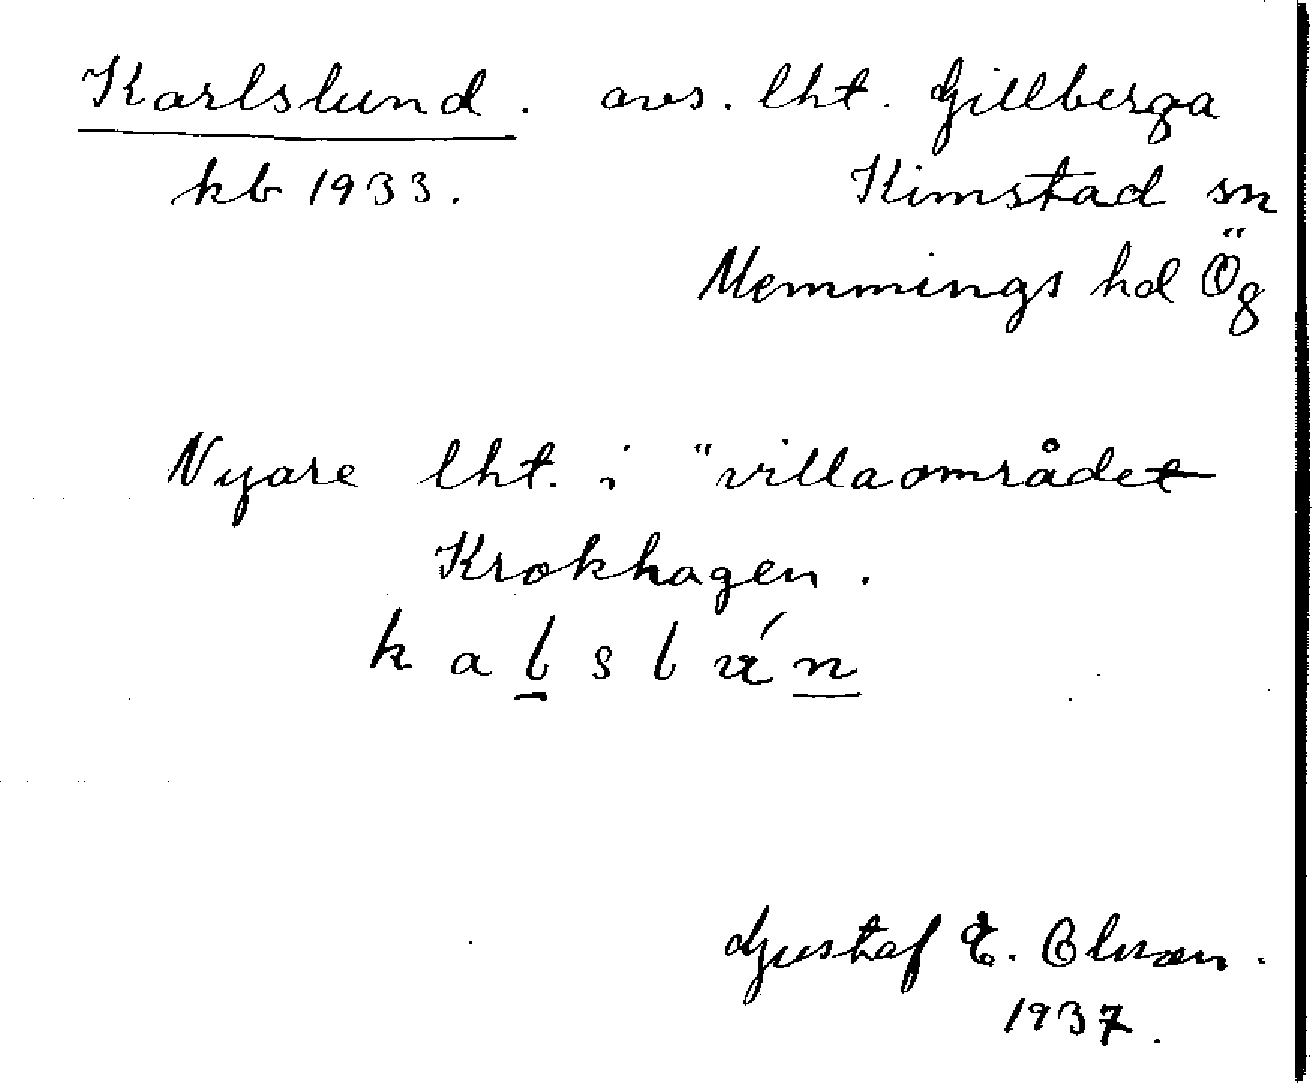 Karlslund. avs. lht. Gillberga
kb 1933. Kimstad sn
Memmings hd Ög
Nyare lht. i "villaområdet
Krokhagen.
Gustaf E.
1937.